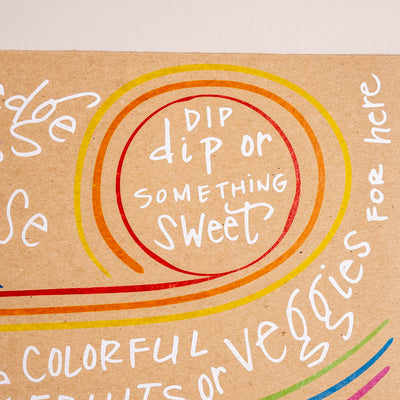 DIP
dip or
SOMETHING
sweet
FOR here
COLORFUL
FRUITS or veggies